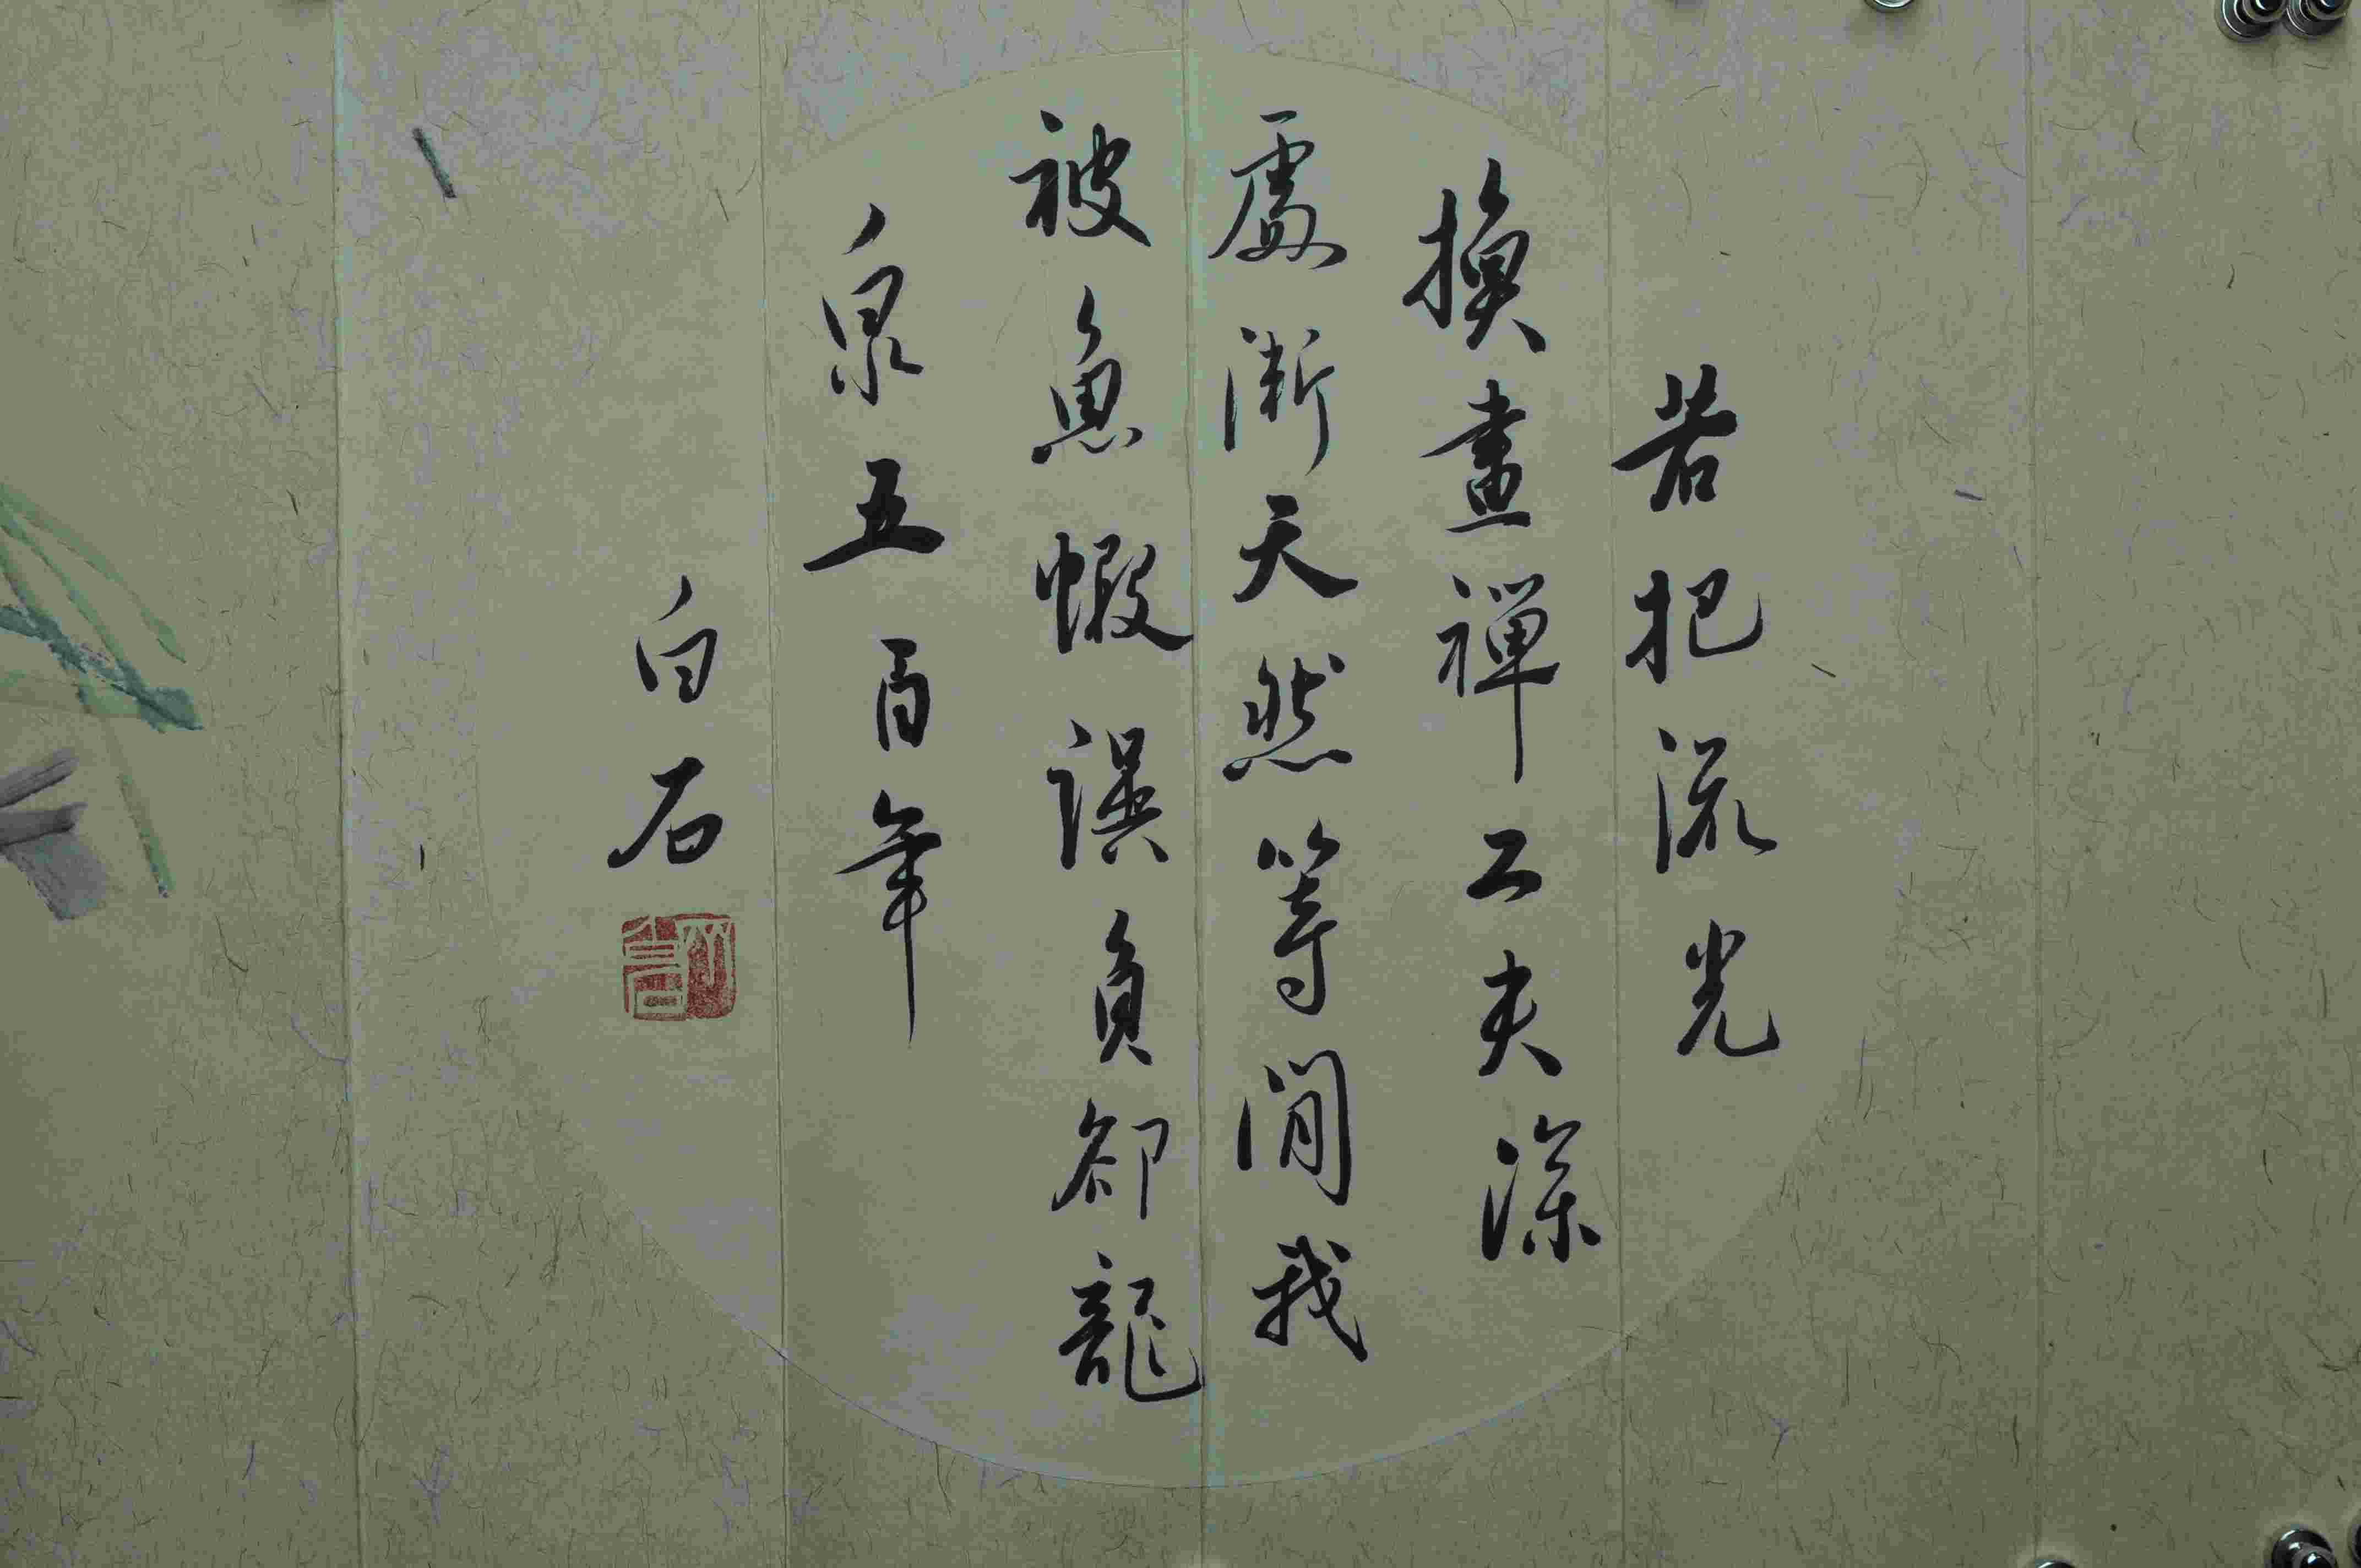 若把流光
換畫禪工夫深
處漸天然等閒我
被魚蝦誤負卻龍
泉五百年
白石